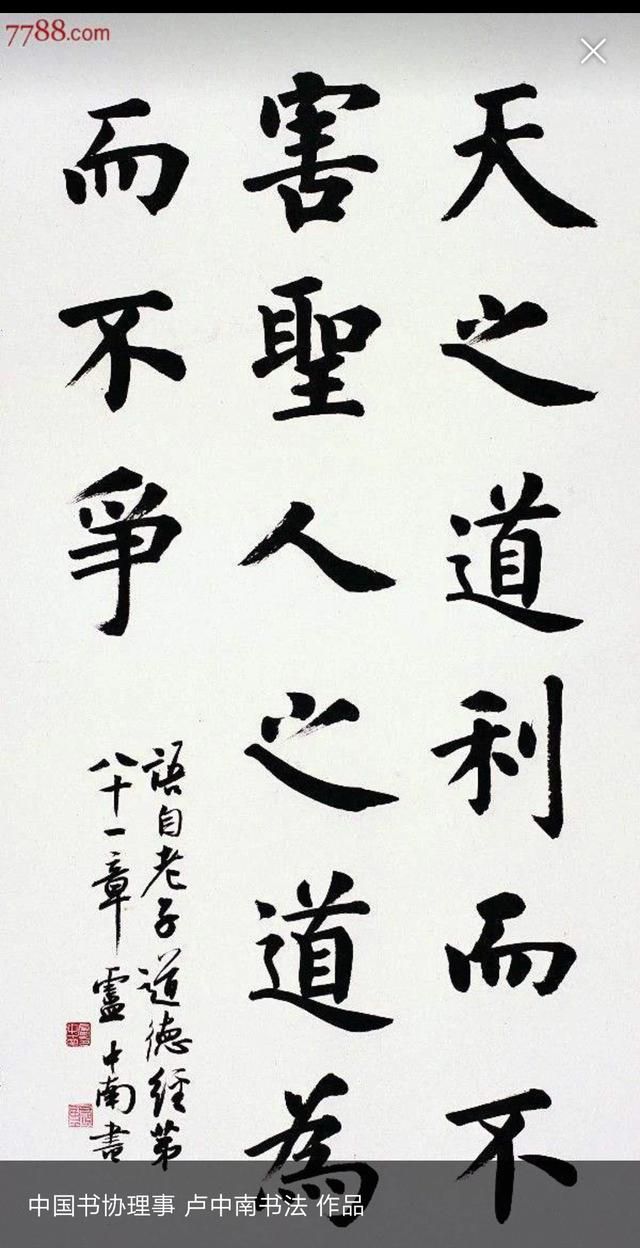 7788.com
天之道利而不
害聖人之道為
而不爭
語自老子道德經第
八十一章 盧中南書
中国书协理事 卢中南书法 作品